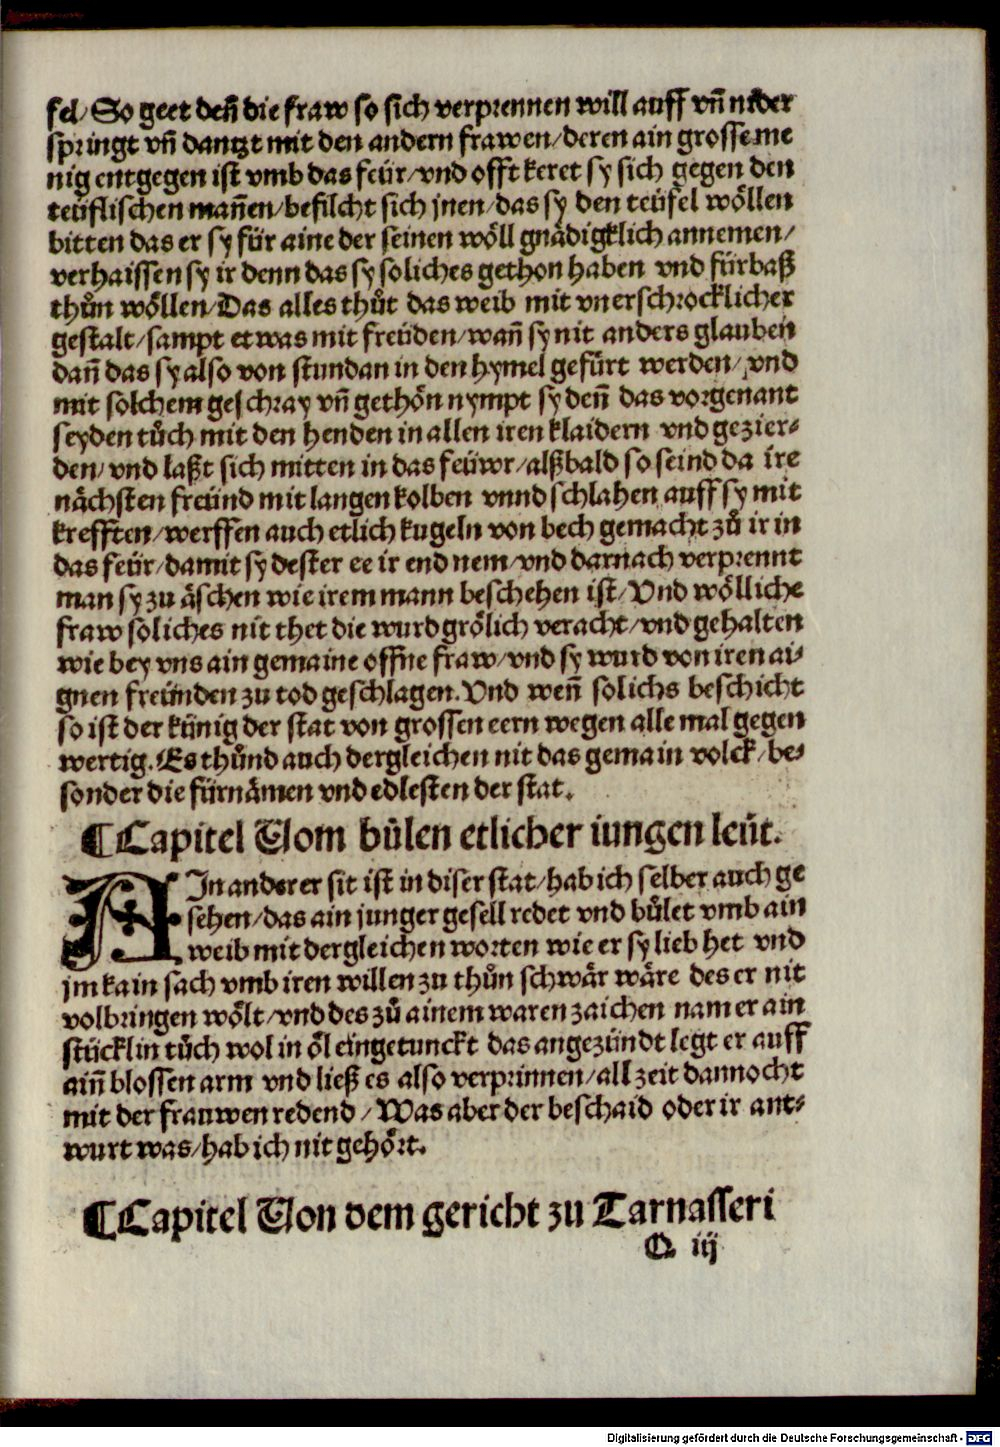 fel/ So geet deñ die fraw so sich verprennen will auff vñ nider
springt vñ dantzt mit den andern frawen/ deren ain grosse me
nig entgegen ist vmb das feür/ vnd offt keret sy sich gegen den
teüflischen mañen/ befilcht sich jnen/ das sy den teüfel wöllen
bitten das er sy für aine der seinen wöll gnädigklich annemen/
verhaissen sy ir denn das sy soliches gethon haben vnd fürbaß
thůn wöllen/ Das alles thůt das weib mit vnerschrocklicher
gestalt/ sampt etwas mit freüden/ wañ sy nit anders glauben
dañ das sy also von stundan in den hymel gefürt werden/ vnd
mit solchem geschray vñ gethön nympt sy deñ das vorgenant
seyden tůch mit den henden in allen iren klaidern vnd gezier⸗
den/ vnd laßt sich mitten in das feüwr/ alßbald so seind da ire
nächsten freünd mit langen kolben vnnd schlahen auff sy mit
krefften/ werffen auch etlich kugeln von bech gemacht zů ir in
das feür/ damit sy dester ee ir end nem/ vnd darnach verprennt
man sy zu äschen wie irem mann beschehen ist/ Vnd wölliche
fraw soliches nit thet die wurd grölich veracht/ vnd gehalten
wie bey vns ain gemaine offne fraw/ vnd sy wurd von iren ai⸗
gnen freünden zu tod geschlagen. Vnd weñ solichs beschicht
so ist der künig der stat von grossen eern wegen alle mal gegen
wertig. Es thůnd auch dergleichen nit das gemain volck/ be⸗
sonder die fürnämen vnd edlesten der stat.
¶ Capitel Vom bůlen etlicher iungen leüt.
AIn anderer sit ist in diser stat/ hab ich selber auch ge
sehen/ das ain junger gesell redet vnd bůlet vmb ain
weib mit dergleichen worten wie er sy lieb het vnd
jm kain sach vmb iren willen zu thůn schwär wäre des er nit
volbringen wölt/ vnd des zů ainem waren zaichen nam er ain
stücklin tůch wol in öl eingetunckt das angezündt legt er auff
aiñ blossen arm vnd ließ es also verprinnen/ all zeit dannocht
mit der frauwen redend/ Was aber der beschaid oder ir ant⸗
wurt was/ hab ich nit gehört.
¶ Capitel Von dem gericht zu Tarnasseri
G iij
Digitalisierung gefördert durch die Deutsche Forschungsgemeinschaft - DFG